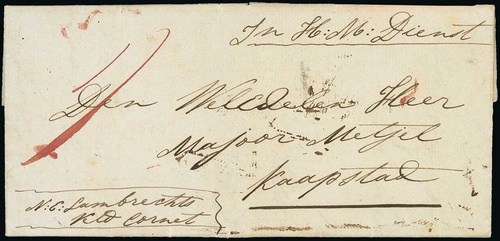 In H: M: Dienst
Den WelEdelen Heer
Majoor Metzel
Kaapstad
N: C: Lambrechts
Vld Cornet